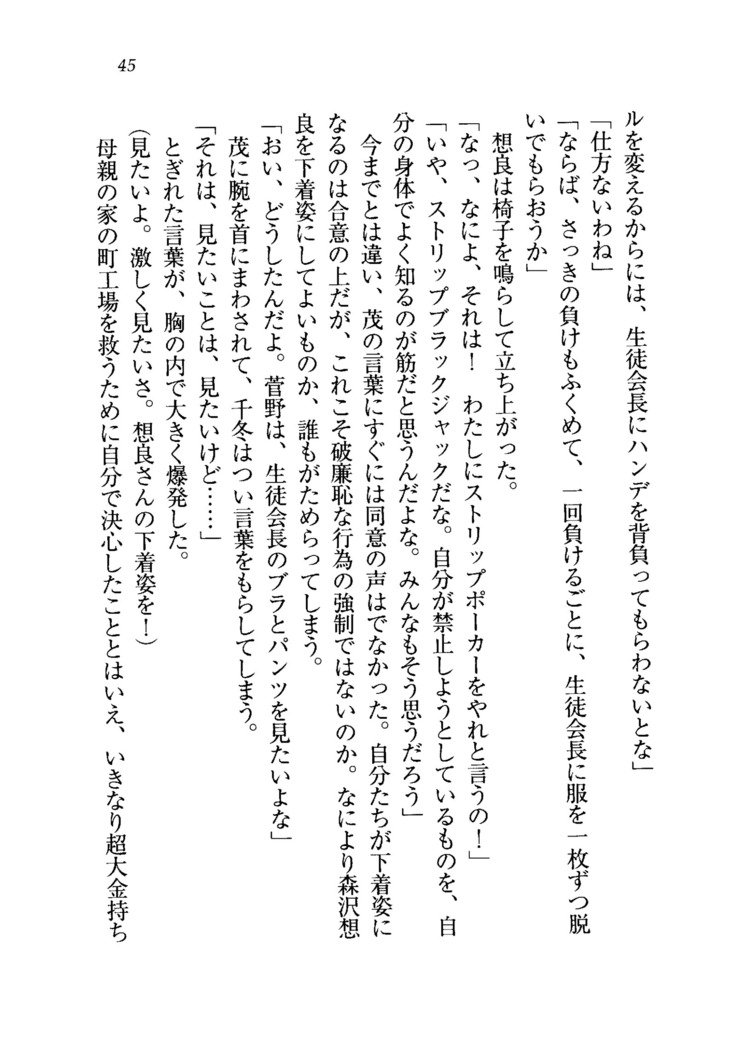 45
ルを変えるからには、生徒会長にハンデを背負ってもらわないとな」
「仕方ないわね」
「ならば、さっきの負けもふくめて、一回負けるごとに、生徒会長に服を一枚ずつ脱
いでもらおうか」
想良は椅子を鳴らして立ち上がった。
「なっ、なによ、それは！　わたしにストリップポーカーをやれと言うの！」
「いや、ストリップブラックジャックだな。自分が禁止しようとしているものを、自
分の身体でよく知るのが筋だと思うんだよな。みんなもそう思うだろう」
今までとは違い、茂の言葉にすぐには同意の声はでなかった。自分たちが下着姿に
なるのは合意の上だが、これこそ破廉恥な行為の強制ではないのか。なにより森沢想
良を下着姿にしてよいものか、誰もがためらってしまう。
「おい、どうしたんだよ。菅野は、生徒会長のブラとパンツを見たいよな」
茂に腕を首にまわされて、千冬はつい言葉をもらしてしまう。
「それは、見たいことは、見たいけど……」
とぎれた言葉が、胸の内で大きく爆発した。
（見たいよ。激しく見たいさ。想良さんの下着姿を！）
母親の家の町工場を救うために自分で決心したこととはいえ、いきなり超大金持ち